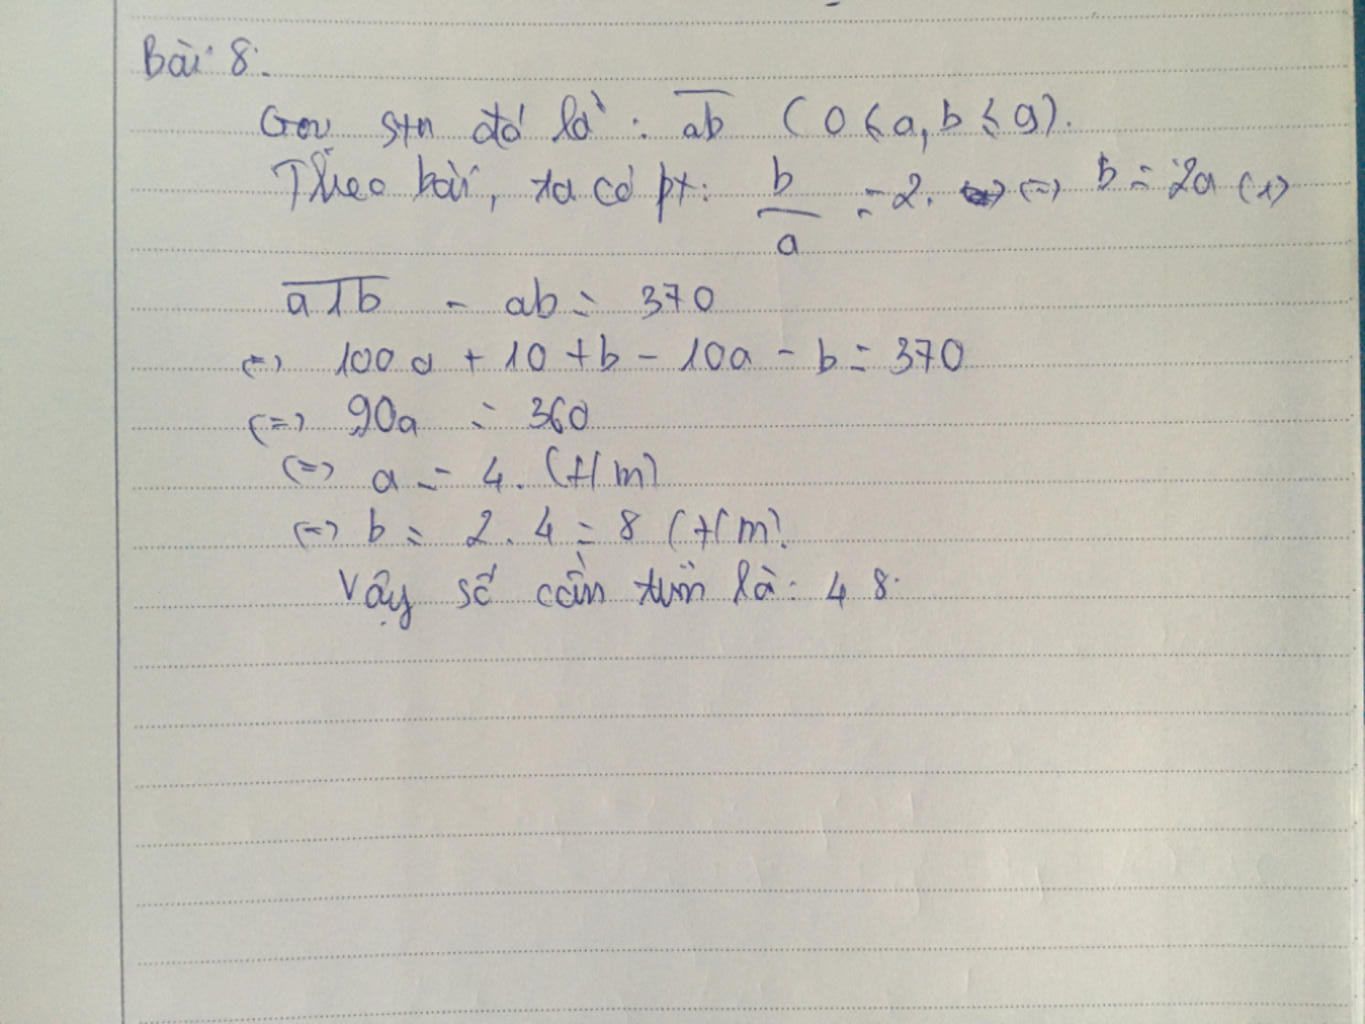 Bài 8.
Gọi stn đó là: ab (0 < a, b ≤ 9).
Theo bài, ta có pt: b/a = 2. <=> b = 2a (1)
a1b - ab = 370
<=> 100a + 10 + b - 10a - b = 370
<=> 90a = 360
<=> a = 4. (t/m)
<=> b = 2.4 = 8 (t/m).
Vậy số cần tìm là: 48.